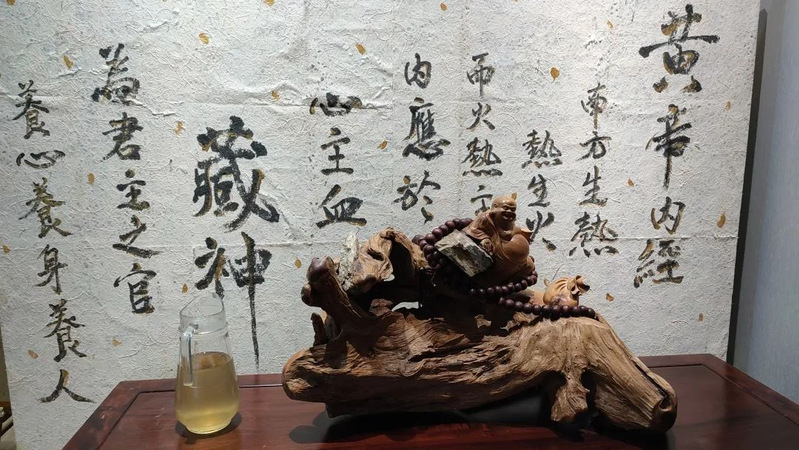 黃帝內經
南方生熱
熱生火
而火熱主
內應於
心主血
藏神
為君主之官
養心養身養人